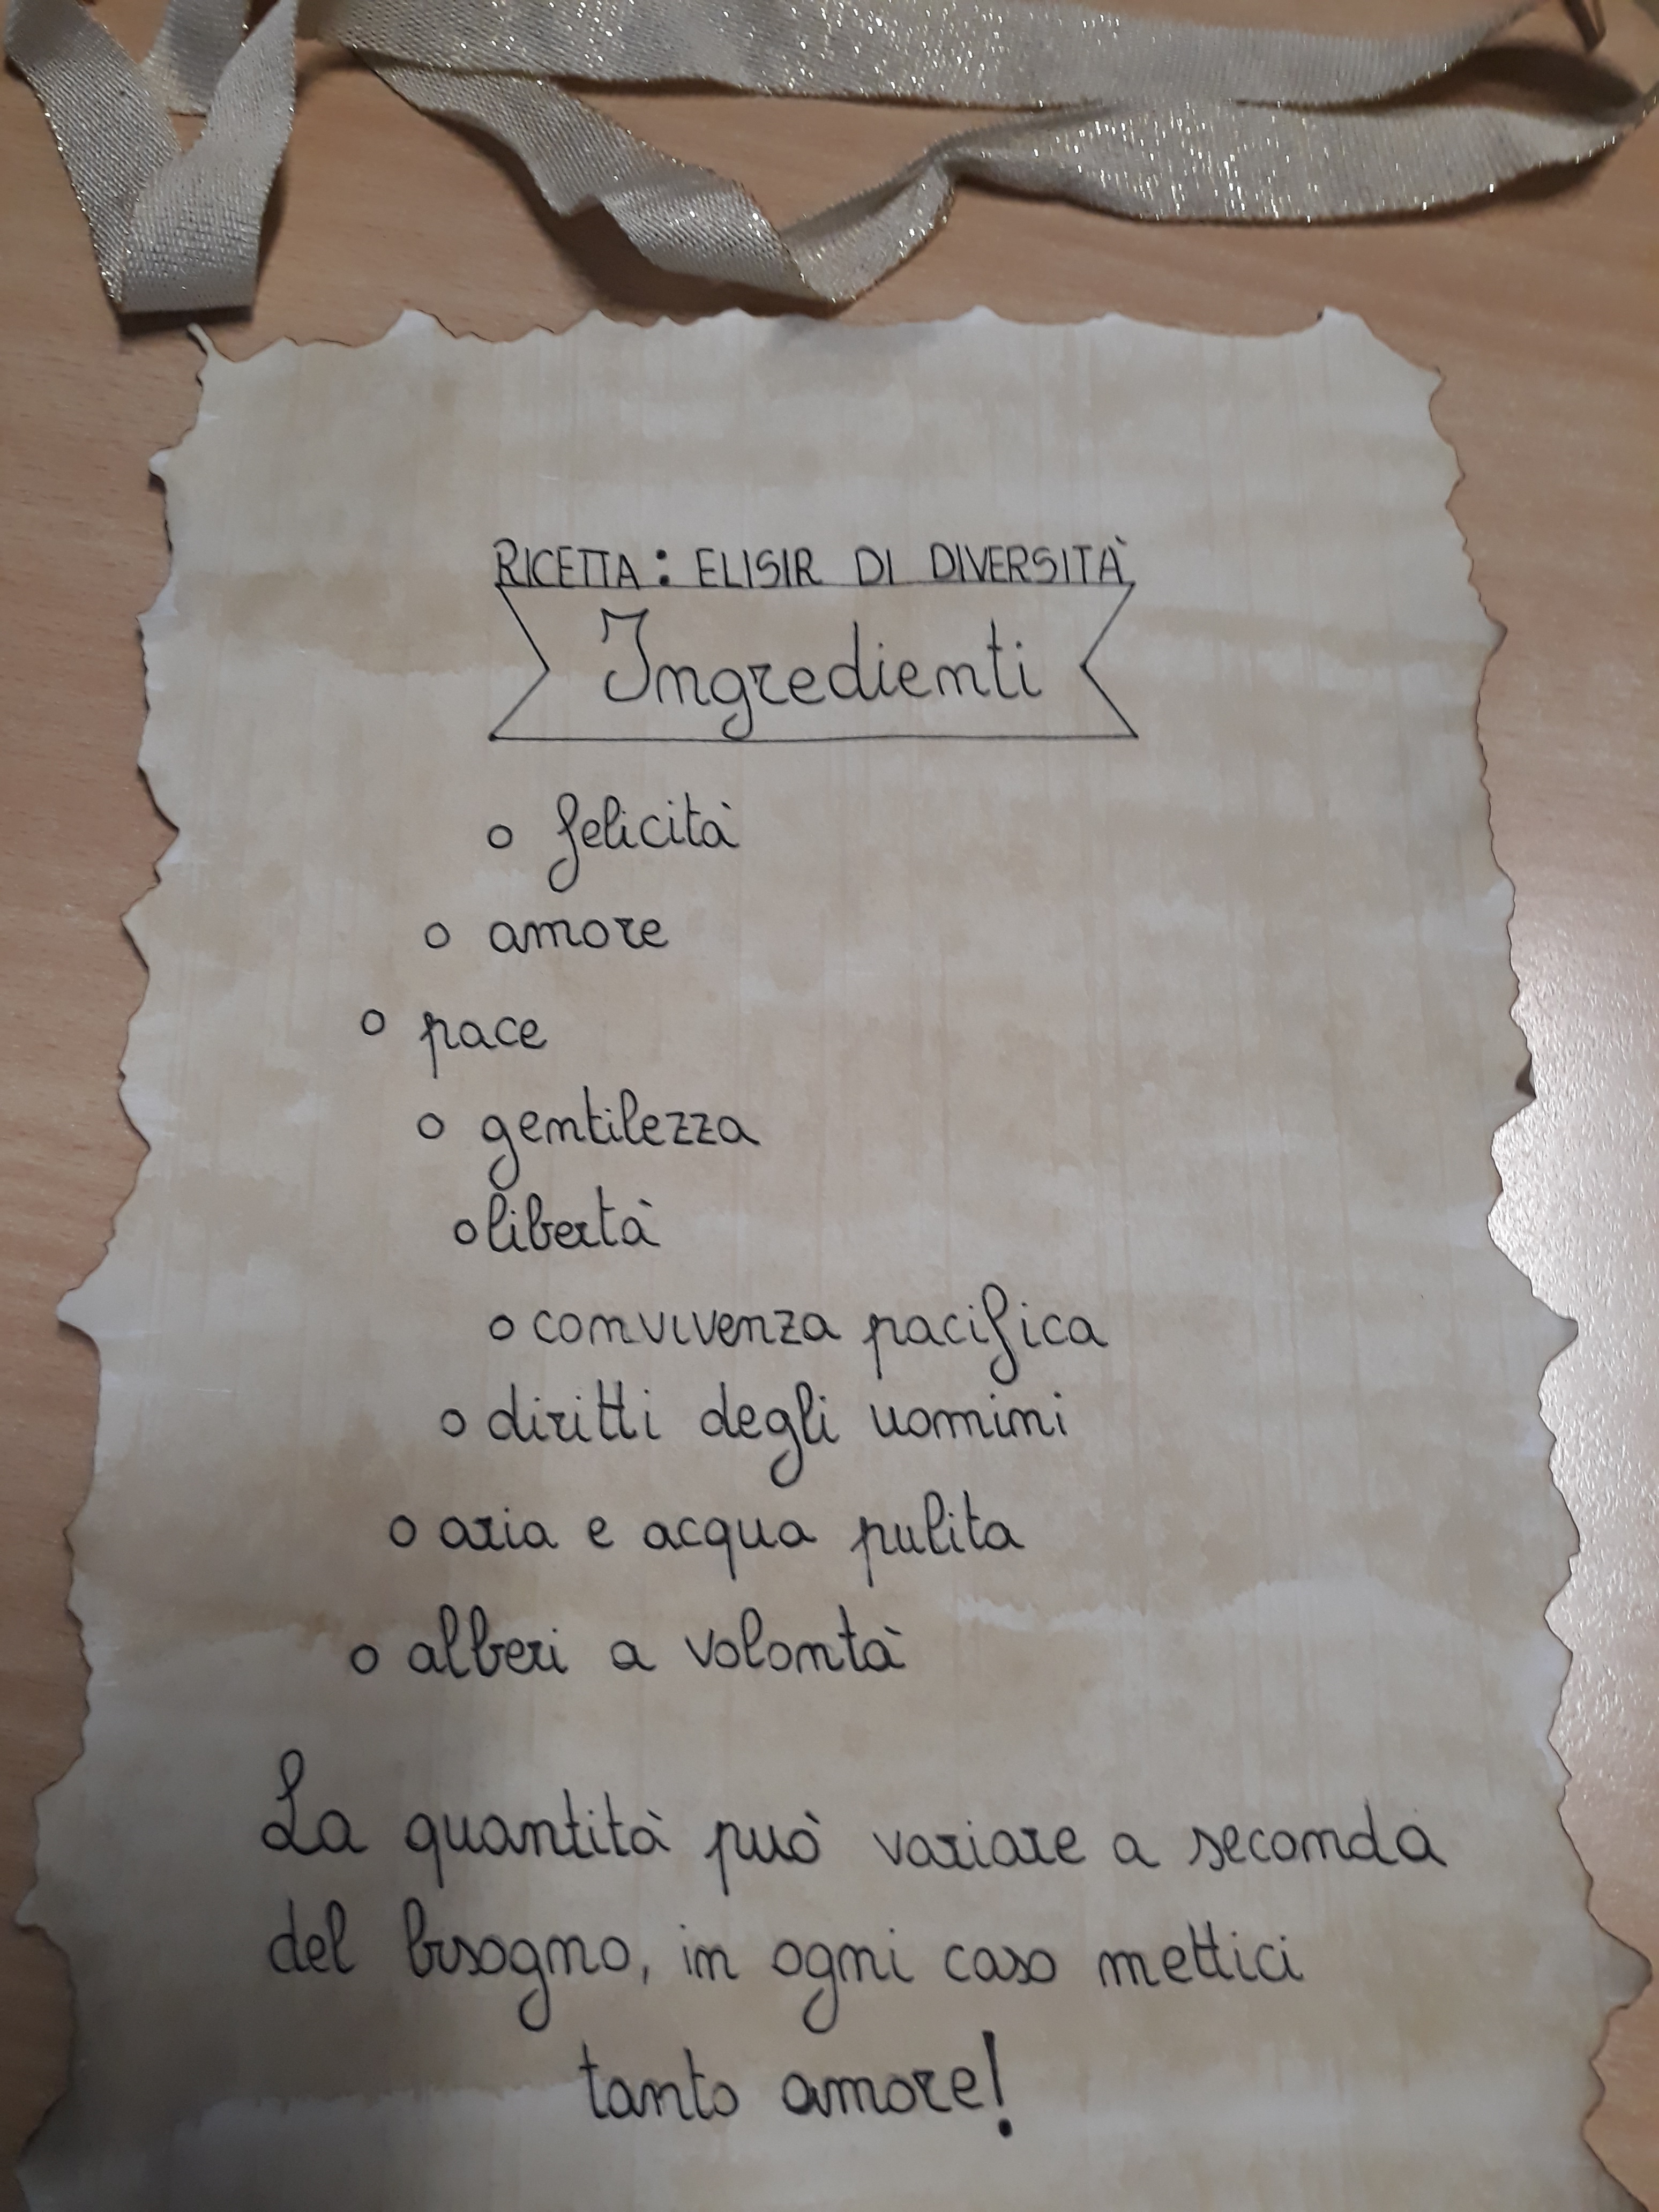 RICETTA: ELISIR DI DIVERSITÀ
Ingredienti
o felicità
o amore
o pace
o gentilezza
o libertà
o convivenza pacifica
o diritti degli uomini
o aria e acqua pulita
o alberi a volontà
La quantità può variare a seconda
del bisogno, in ogni caso mettici
tanto amore!